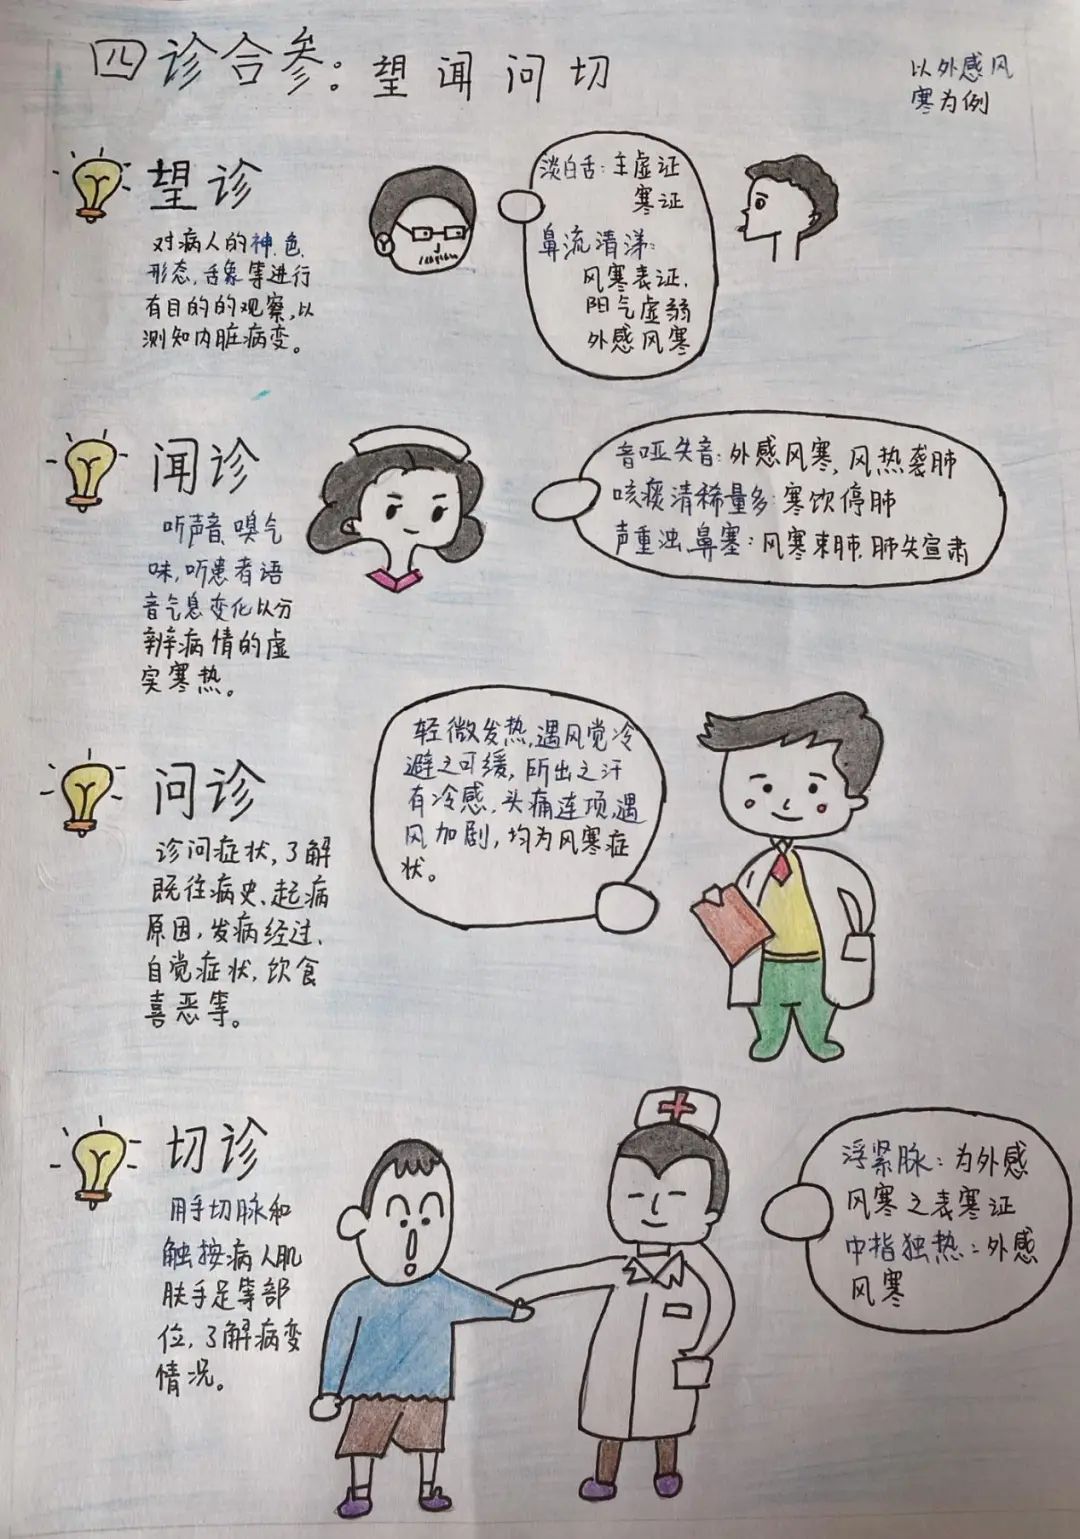 四诊合参：望闻问切
以外感风
寒为例
望诊
对病人的神、色、
形态，舌象等进行
有目的的观察，以
测知内脏病变。
淡白舌：主虚证
寒证
鼻流清涕：
风寒表证，
阳气虚弱
外感风寒
闻诊
听声音、嗅气
味，听患者语
音气息变化以分
辨病情的虚
实寒热。
音哑失音：外感风寒，风热袭肺
咳痰清稀量多：寒饮停肺
声重浊、鼻塞：风寒束肺，肺失宣肃
问诊
诊问症状，了解
既往病史、起病
原因，发病经过、
自觉症状，饮食
喜恶等。
轻微发热，遇风觉冷
避之可缓，所出之汗
有冷感，头痛连项，遇
风加剧，均为风寒症
状。
切诊
用手切脉和
触按病人肌
肤手足等部
位，了解病变
情况。
浮紧脉：为外感
风寒之表寒证
中指独热：外感
风寒